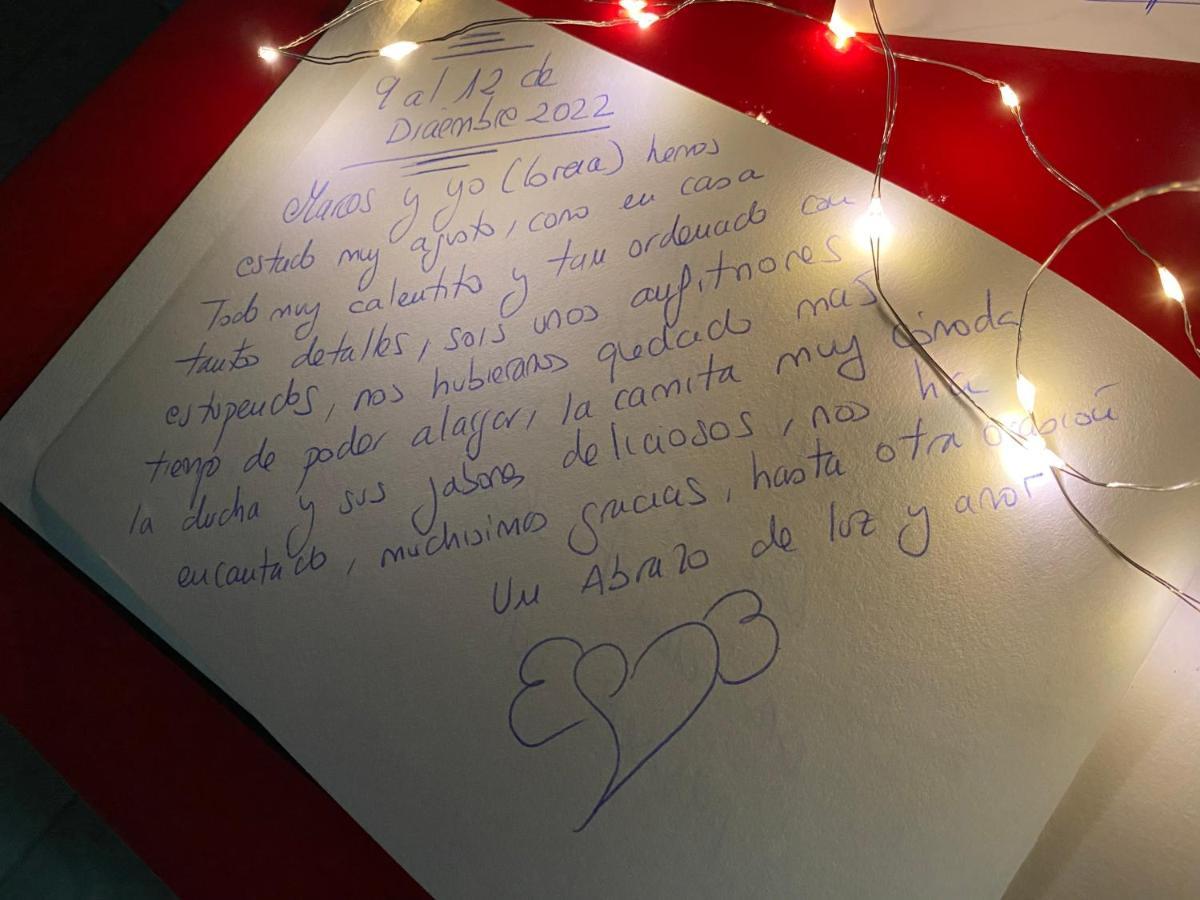 9 al 12 de
Diciembre 2022
Marcos y yo (lorena) hemos
estado muy agusto, como en casa
Todo muy calentito y tan ordenado con
tanto detalles, sois unos anfitriones
estupendos, nos hubieramos quedado mas
tiempo de poder alagar, la camita muy cómoda
la ducha y sus jabones deliciosos, nos ha
encantado, muchisimas gracias, hasta otra ocasión
Un Abrazo de luz y amor